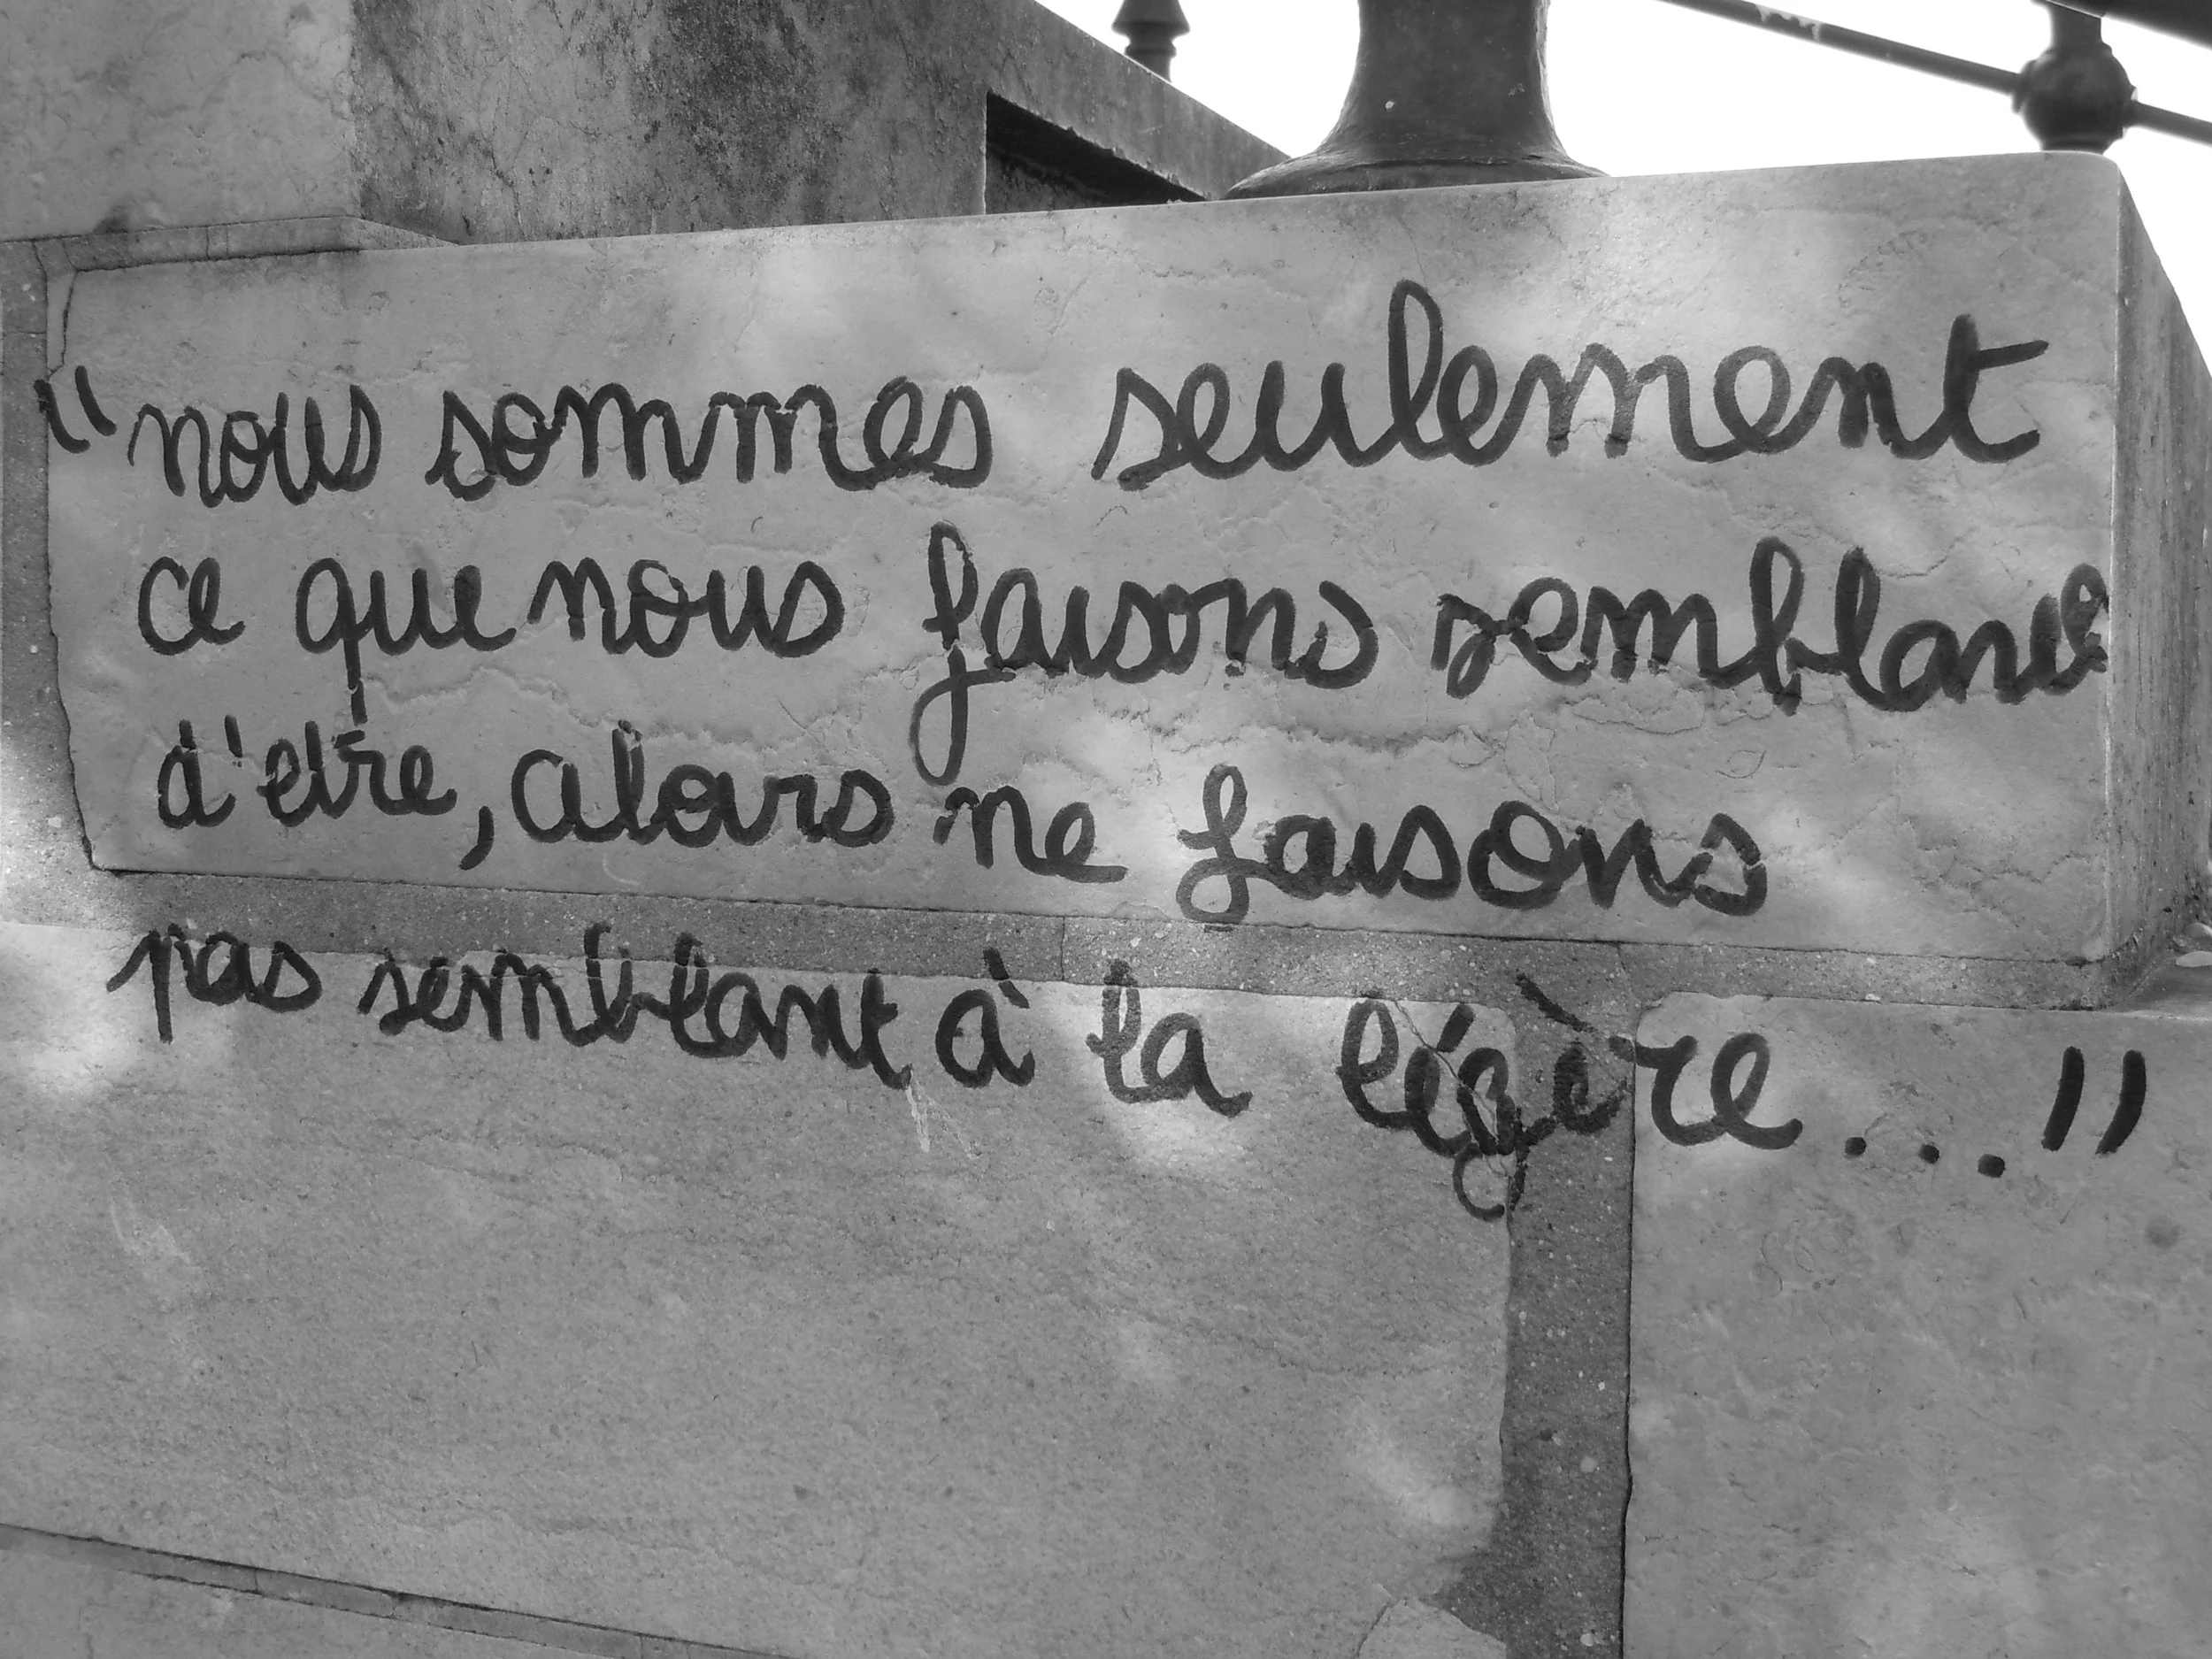 "nous sommes seulement
ce que nous faisons semblant
d'etre, alors ne faisons
pas semblant à la légère..."